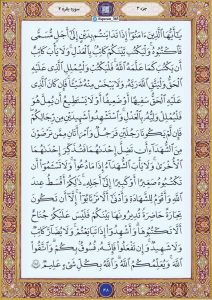 جزء ۳
سوره بقره ۲
يَٰٓأَيُّهَا ٱلَّذِينَ ءَامَنُوٓاْ إِذَا تَدَايَنتُم بِدَيْنٍ إِلَىٰٓ أَجَلٍ مُّسَمًّى
فَٱكْتُبُوهُ وَلْيَكْتُب بَّيْنَكُمْ كَاتِبٌۢ بِٱلْعَدْلِ وَلَا يَأْبَ كَاتِبٌ
أَن يَكْتُبَ كَمَا عَلَّمَهُ ٱللَّهُ فَلْيَكْتُبْ وَلْيُمْلِلِ ٱلَّذِى عَلَيْهِ
ٱلْحَقُّ وَلْيَتَّقِ ٱللَّهَ رَبَّهُۥ وَلَا يَبْخَسْ مِنْهُ شَيْـًٔا فَإِن كَانَ ٱلَّذِى
عَلَيْهِ ٱلْحَقُّ سَفِيهًا أَوْ ضَعِيفًا أَوْ لَا يَسْتَطِيعُ أَن يُمِلَّ هُوَ
فَلْيُمْلِلْ وَلِيُّهُۥ بِٱلْعَدْلِ وَٱسْتَشْهِدُواْ شَهِيدَيْنِ مِن رِّجَالِكُمْ
فَإِن لَّمْ يَكُونَا رَجُلَيْنِ فَرَجُلٌ وَٱمْرَأَتَانِ مِمَّن تَرْضَوْنَ
مِنَ ٱلشُّهَدَآءِ أَن تَضِلَّ إِحْدَىٰهُمَا فَتُذَكِّرَ إِحْدَىٰهُمَا
ٱلْأُخْرَىٰ وَلَا يَأْبَ ٱلشُّهَدَآءُ إِذَا مَا دُعُواْ وَلَا تَسْـَٔمُوٓاْ أَن
تَكْتُبُوهُ صَغِيرًا أَوْ كَبِيرًا إِلَىٰٓ أَجَلِهِۦ ذَٰلِكُمْ أَقْسَطُ عِندَ
ٱللَّهِ وَأَقْوَمُ لِلشَّهَٰدَةِ وَأَدْنَىٰٓ أَلَّا تَرْتَابُوٓاْ إِلَّآ أَن تَكُونَ
تِجَٰرَةً حَاضِرَةً تُدِيرُونَهَا بَيْنَكُمْ فَلَيْسَ عَلَيْكُمْ جُنَاحٌ
أَلَّا تَكْتُبُوهَا وَأَشْهِدُوٓاْ إِذَا تَبَايَعْتُمْ وَلَا يُضَآرَّ كَاتِبٌ
وَلَا شَهِيدٌ وَإِن تَفْعَلُواْ فَإِنَّهُۥ فُسُوقٌۢ بِكُمْ وَٱتَّقُواْ
ٱللَّهَ وَيُعَلِّمُكُمُ ٱللَّهُ وَٱللَّهُ بِكُلِّ شَىْءٍ عَلِيمٌ ۝
۴۸